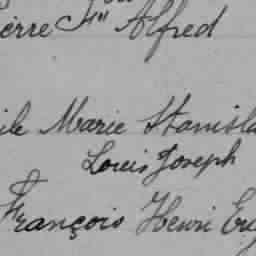 Pierre Fs Alfred
Marie Stanisla
Louis Joseph
François Henri Eug